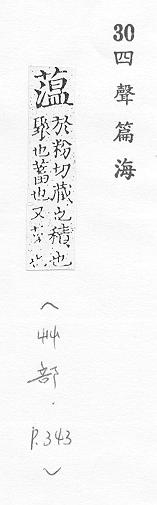 30四聲篇海
蕰
於粉切藏也積也
聚也蓄也又
(艸部.P.343)